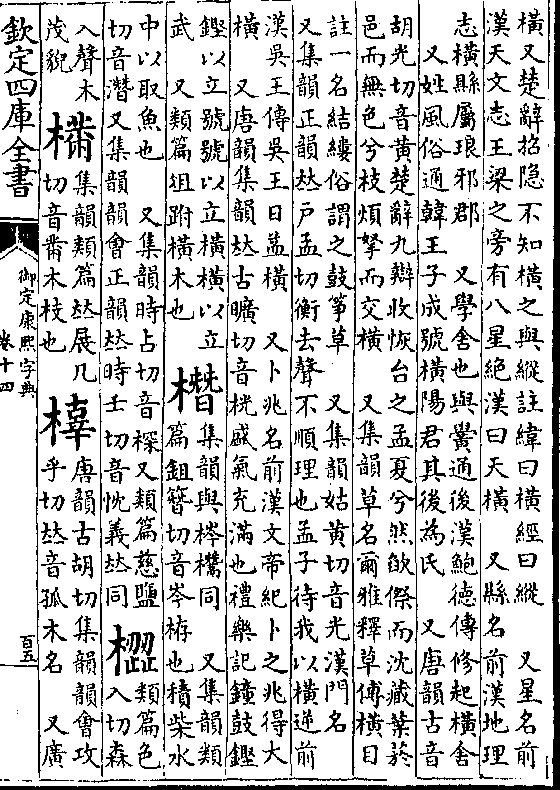 橫又楚辭招隱不知橫之與縱註緯曰橫經曰縱　又星名前
漢天文志王梁之旁有八星絕漢曰天橫　又縣名前漢地理
志橫縣屬琅邪郡　又學舍也與黌通後漢鮑德傳修起橫舍
又姓風俗通韓王子成號橫陽君其後為氏　又唐韻古音
胡光切音黃楚辭九辯收恢台之孟夏兮然欿傺而沈藏葉菸
邑而無色兮枝煩挐而交橫　又集韻草名爾雅釋草傅橫目
註一名結縷俗謂之鼓箏草　又集韻姑黃切音光漢門名
又集韻正韻𠀤戶孟切衡去聲不順理也孟子待我以橫逆前
漢吳王傳吳王日益橫　又卜兆名前漢文帝紀卜之兆得大
橫　又唐韻集韻𠀤古曠切音桄盛氣充滿也禮樂記鐘鼓鏗
鏗以立號號以立橫橫以立
武　又類篇俎跗橫木也
橬
集韻與梣同　又集韻類
篇鉏簪切音岑栫也積柴水
中以取魚也　又集韻時占切音棎又類篇慈鹽
切音潛又集韻韻會正韻𠀤時壬切音忱義𠀤同
類篇色
入切森
入聲木
茂貌
集韻類篇𠀤展几
切音黹木枝也
橭
唐韻古胡切集韻韻會攻
乎切𠀤音孤木名　又廣
欽定四庫全書
御定康熙字典
卷十四
百五